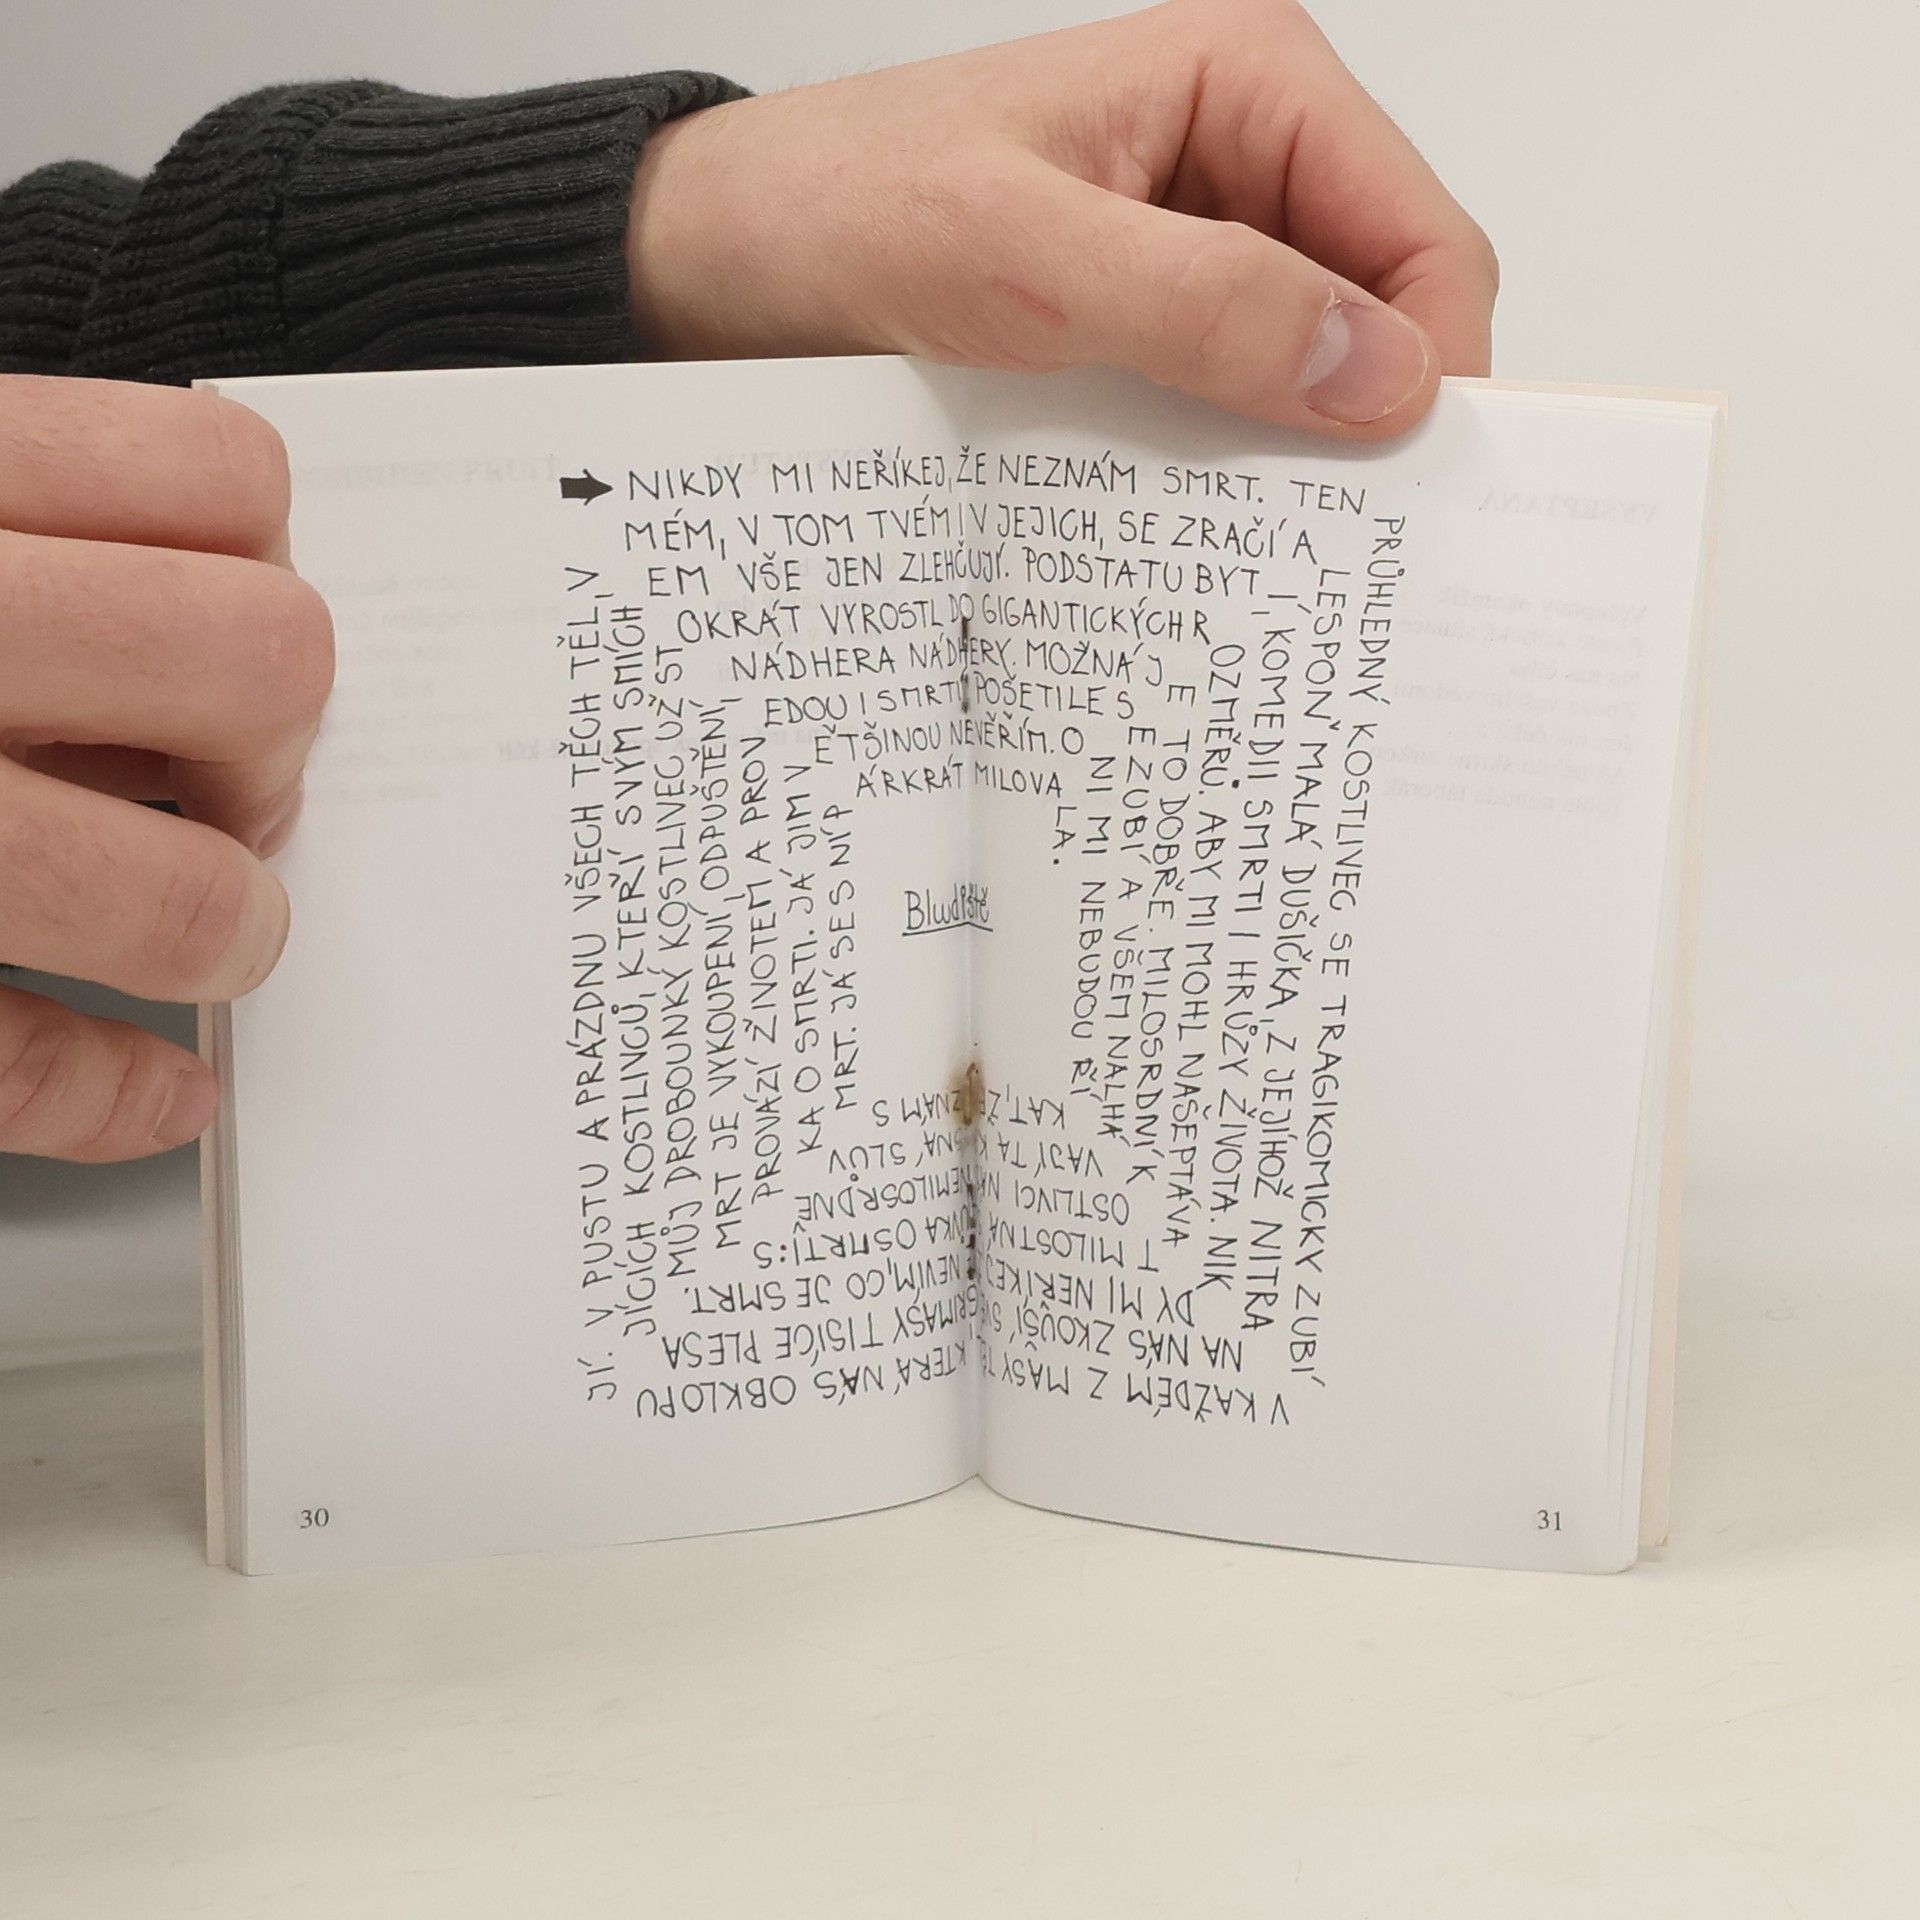 NIKDY MI NEŘÍKEJ, ŽE NEZNÁM SMRT. TEN
PRŮHLEDNÝ KOSTLIVEC SE TRAGIKOMICKY ZUBÍ
V KAŽDÉM Z MASY KTERÁ NÁS OBKLOPU
JÍ. V PUSTU A PRÁZDNU VŠECH TĚCH TĚL, V
MÉM, V TOM TVÉM I V JEJICH, SE ZRAČÍ A
LESPOŇ MALÁ DUŠIČKA, Z JEJÍHOŽ NITRA
NA NÁS ZKOUŠÍ SVÉ GRIMASY TISÍCE PLESA
JÍCÍCH KOSTLIVCŮ, KTEŘÍ SVÝM SMÍCH
EM VŠE JEN ZLEHČUJÍ. PODSTATU BYT
Í, I KOMEDII SMRTI I HRŮZY ŽIVOTA. NIK
DY MI NEŘÍKEJ, NEVÍM, CO JE SMRT.
MŮJ DROBOUNKÝ KOSTLIVEC UŽ ST
OKRÁT VYROSTL DO GIGANTICKÝCH R
OZMĚRŮ. ABY MI MOHL NAŠEPTÁVA
T MILOSTNÁ SLŮVKA O SMRTI: S
MRT JE VYKOUPENÍ, ODPUŠTĚNÍ,
NÁDHERA NÁDHERY. MOŽNÁ J
E TO DOBŘE. MILOSRDNÍ K
OSTLIVCI NÁS NEMILOSRDNĚ
PROVÁZÍ ŽIVOTEM A PROV
EDOU I SMRTÍ. POŠETILE S
E ZUBÍ A VŠEM NALHÁ
VAJÍ TA KRÁSNÁ SLŮV
KA O SMRTI. JÁ JIM V
ĚTŠINOU NEVĚŘÍM. O
NI MI NEBUDOU ŘÍ
KAT, ŽE NEZNÁM S
MRT. JÁ SE S NÍ P
ÁRKRÁT MILOVA
LA.
Bludiště
30
31